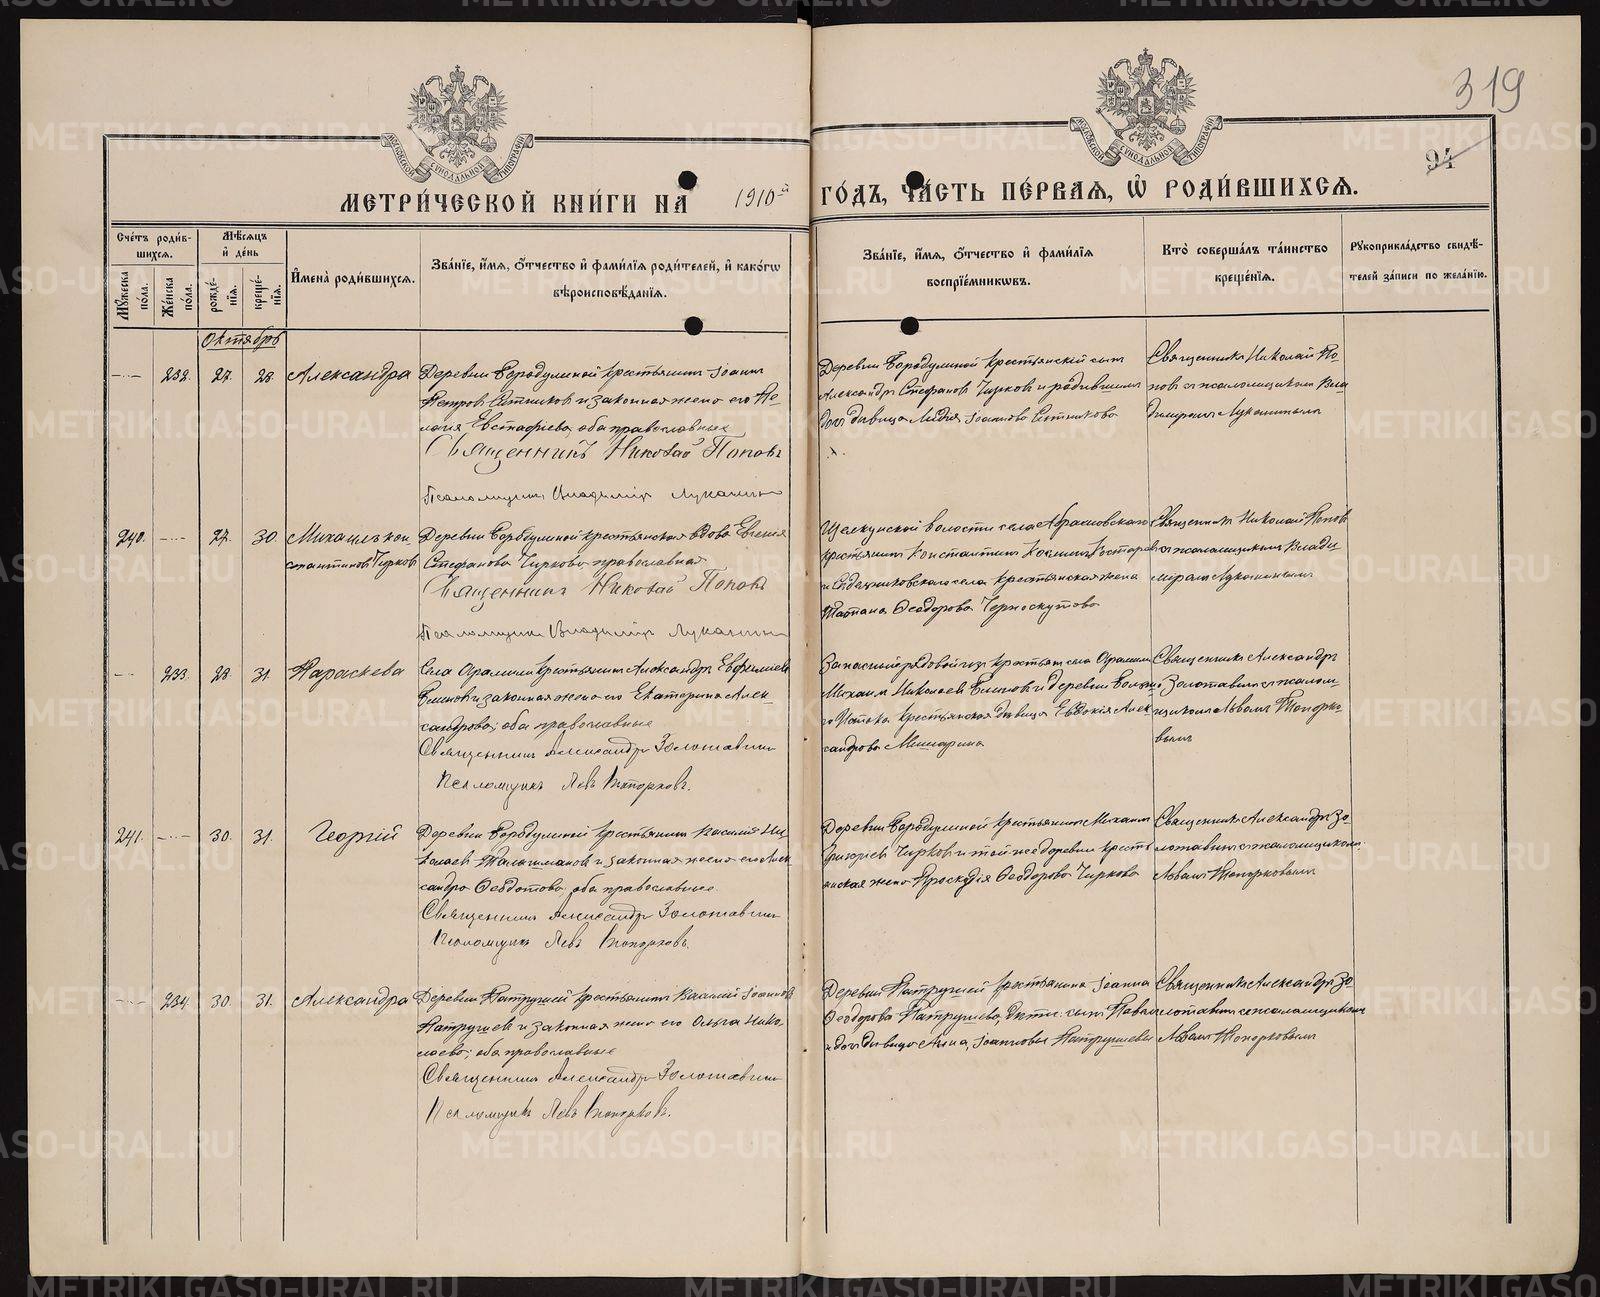 319
94
МОСКОВСКОЙ СѴНОДАЛЬНОЙ ТИПОГРАФІИ
МОСКОВСКОЙ СѴНОДАЛЬНОЙ ТИПОГРАФІИ
МЕТРИ́ЧЕСКОЙ КНИ́ГИ НА 1910-й
ГО́ДЪ, ЧА́СТЬ ПЕ́РВАЯ, Ѡ҆ РОДИ́ВШИХСЯ.
Сче́тъ роди́в-
шихся.
Мꙋ́жеска по́ла.
Же́нска по́ла.
Мѣ́сяцъ
и҆ де́нь
рожде́-
нїя.
креще́-
нїя.
И҆мена̀ роди́вшихся.
Зва́нїе, и҆́мя, ѻ҆́тчество и҆ фами́лїя роди́телей, и҆ како́гѡ
вѣроисповѣ́данїя.
Зва́нїе, и҆́мя, ѻ҆́тчество и҆ фами́лїя
воспрїе́мникѡвъ.
Кто̀ соверша́лъ та́инство
креще́нїя.
Рꙋкоприкла́дство свидѣ́-
телей за́писи по жела́нїю.
Октябрь
232. 27. 28. Александра
Деревни Бородулиной крестьянинъ Іоаннъ
Петровъ Ситниковъ и законная жена его Пе-
лагія Евстафіева, оба православные
Священникъ Николай Поповъ
Псаломщикъ Владиміръ Луканинъ
Деревни Бородулиной крестьянскій сынъ
Александръ Стефановъ Чирковъ и родившимъ
дочь дѣвица Лидія Іоаннова Ситникова
Священникъ Николай По-
повъ съ псаломщикомъ Вла
диміромъ Луканинымъ
240. 27. 30. Михаилъ Кон
стантиновъ Чирковъ
Деревни Бородулиной крестьянская вдова Евгенія
Стефанова Чиркова православная
Священникъ Николай Поповъ
Псаломщикъ Владиміръ Луканинъ
Щелкунской волости села Абрамовскаго
крестьянинъ Константинъ Косминъ Костаревъ
и села крестьянская жена
Татіана Ѳеодорова Черноскутова
Священникъ Николай Поповъ
съ псаломщикомъ Влади-
міромъ Луканинымъ
233. 28. 31. Параскева
Села Арамили крестьянинъ Александръ Евфиміевъ
Блиновъ и законная жена его Екатерина Алек-
сандрова; оба православные
Священникъ Александръ Золотавинъ
Псаломщикъ Левъ Топорковъ.
Запасный рядовой изъ крестьянъ села Арамили
Михаилъ Николаевъ Блиновъ и деревни Больш-
го Истока крестьянская дѣвица Евдокія Алек-
сандрова Мишарина
Священникъ Александръ
Золотавинъ съ псалом-
щикомъ Львомъ Топорко-
вымъ
241. 30. 31. Георгій
Деревни Бородулиной крестьянинъ Василій Ни-
колаевъ и законная жена его Алек
сандра Ѳедотова, оба православные
Священникъ Александръ Золотавинъ
Псаломщикъ Левъ Топорковъ.
Деревни Бородулиной крестьянинъ Михаилъ
Григорьевъ Чирковъ и той же деревни крестья
нская жена Проскудія Ѳеодорова Чиркова
Священникъ Александръ Зо-
лотавинъ съ псаломщикомъ
Львомъ Топорковымъ
234. 30. 31. Александра
Деревни Патрушей крестьянинъ Василій Іоанновъ
Патрушевъ и законная жена его Ольга Нико-
лаева; оба православные
Священникъ Александръ Золотавинъ
Псаломщикъ Левъ Топорковъ.
Деревни Патрушей крестьянина Іоанна
Ѳеодорова Патрушева, дѣти: сынъ Павелъ
и дочь дѣвица Анна, Іоанновы Патрушевы
Священникъ Александръ Зо-
лотавинъ съ псаломщикомъ
Львомъ Топорковымъ
METRIKI.GASO-URAL.RU